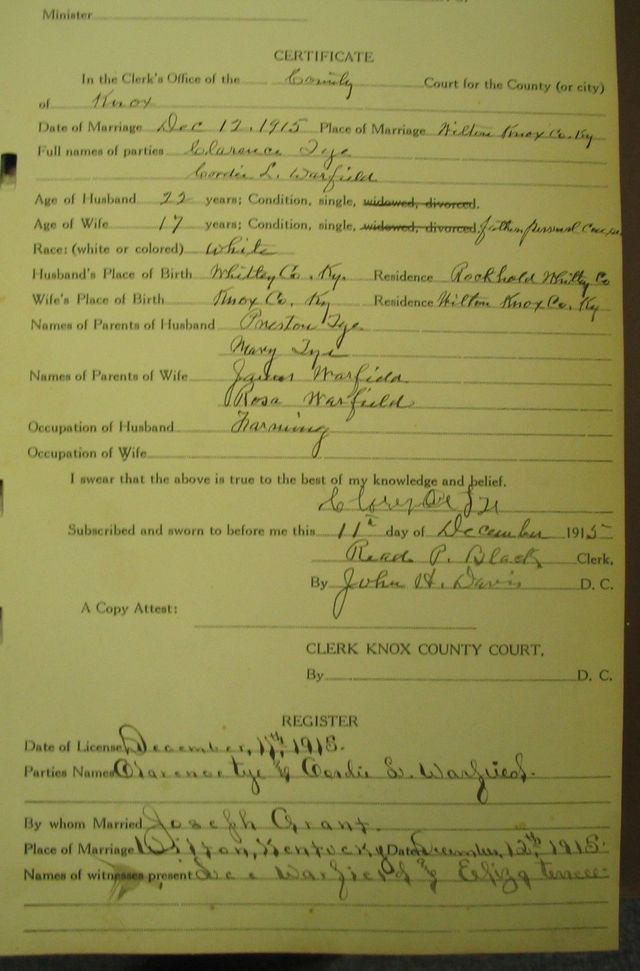 Minister
CERTIFICATE
In the Clerk's Office of the County Court for the County (or city)
of Knox
Date of Marriage Dec 12, 1915 Place of Marriage Wilton Knox Co. Ky
Full names of parties Clarence Tye
Cordie L. Warfield
Age of Husband 22 years; Condition, single, widowed, divorced.
Age of Wife 17 years; Condition, single, widowed, divorced. father personal
Race: (white or colored) White
Husband's Place of Birth Whitley Co. Ky. Residence Rockhold Whitley Co
Wife's Place of Birth Knox Co. Ky Residence Wilton Knox Co. Ky
Names of Parents of Husband Preston Tye
Mary Tye
Names of Parents of Wife James Warfield
Rosa Warfield
Occupation of Husband Farming
Occupation of Wife
I swear that the above is true to the best of my knowledge and belief.
Subscribed and sworn to before me this 11th day of December 1915
Read P. Black Clerk,
By John H. Davis D. C.
A Copy Attest:
CLERK KNOX COUNTY COURT,
By D. C.
REGISTER
Date of License December, 11th, 1915.
Parties Names Clarence tye & Cordie L. Warfield.
By whom Married Joseph Grant.
Place of Marriage Wilton, Kentucky Date December, 12th, 1915.
Names of witnesses present Warfield & Eliza